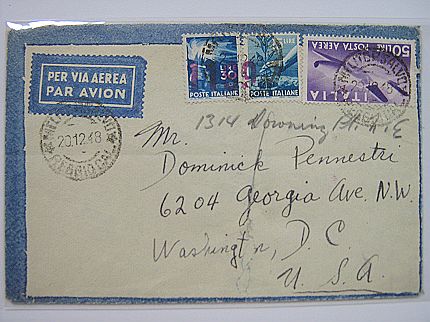 PER VIA AEREA
PAR AVION
POSTE ITALIANE
LIRE
POSTE ITALIANE
50 LIRE
POSTA AEREA
ITALIA
20.12.48
REGGIO CAL
1314 Downing St. N.E
Mr.
Dominick Pennestri
6204 Georgia Ave. N.W.
Washington, D.C.
U.S.A.